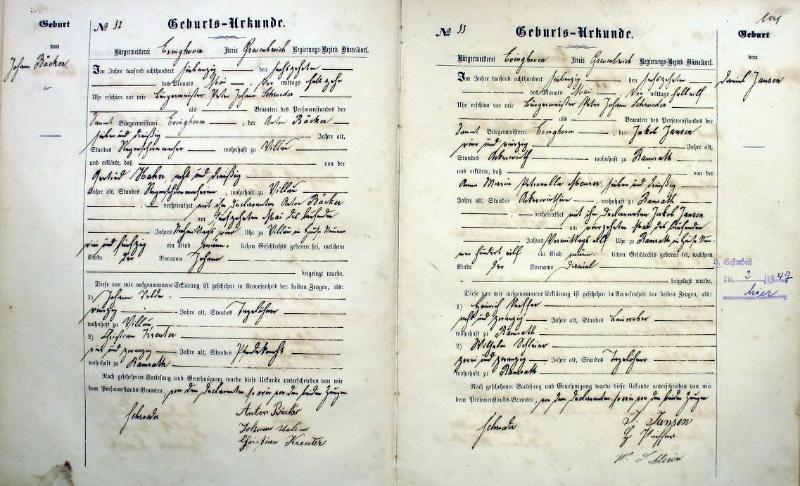 Geburt
von
Johann Bäcker
№ 32 Geburts-Urkunde.
Bürgermeisterei Evinghoven Kreis Grevenbroich Regierungs-Bezirk Düsseldorf.
Im Jahre tausend achthundert siebenzig den sechszehnten
des Monats Mai Vor mittags halb zehn
Uhr erschien vor mir Bürgermeister Peter Johann Schroeder
als Beamten des Personenstandes der
Samt Bürgermeisterei Evinghoven, der Anton Bäcker
sieben und dreißig Jahre alt,
Standes wohnhaft zu Villau
und erklärte, daß von der
Gertrud Hahn acht und dreißig
Jahre alt, Standes wohnhaft zu Villau
verheirathet mit ihm Declaranten Anton Bäcker
am fünfzehnten Mai des laufenden
Jahres Nachmittags vier Uhr zu Villau im Hause Numero
ein Kind männlichen Geschlechts geboren sei, welchem
Kinde der Vorname Johann
beigelegt wurde.
Diese von mir aufgenommene Erklärung ist geschehen in Anwesenheit der beiden Zeugen, als:
1) Johann
Jahre alt, Standes Tagelöhner
wohnhaft zu Villau
2) Christian Kreuter
und zwanzig Jahre alt, Standes Pferdeknecht
wohnhaft zu Ramrath
Nach geschehener Vorlesung und Genehmigung wurde diese Urkunde unterschrieben von mir
dem Personenstands-Beamten, von dem Declaranten sowie von den beiden Zeugen
Schroeder
Anton Bäcker
Johann
Christian Kreuter
№ 33 Geburts-Urkunde.
Bürgermeisterei Evinghoven Kreis Grevenbroich Regierungs-Bezirk Düsseldorf.
Im Jahre tausend achthundert siebenzig den sechszehnten
des Monats Mai, Vor mittags halb elf
Uhr erschien vor mir Bürgermeister Peter Johann Schroeder
als Beamten des Personenstandes der
Samt Bürgermeisterei Evinghoven, der Jakob Jansen
vier und vierzig Jahre alt,
Standes Ackerwirth wohnhaft zu Ramrath
und erklärte, daß von der
Anna Maria Petronella Maurer sieben und dreißig
Jahre alt, Standes Ackerwirthin wohnhaft zu Ramrath
verheirathet mit ihm Declaranten Jakob Jansen
am vierzehnten Mai des laufenden
Jahres Vormittags elf Uhr zu Ramrath im Hause Nu-
mero hundert elf ein Kind männlichen Geschlechts geboren sei, welchem
Kinde der Vorname Daniel
beigelegt wurde.
Diese von mir aufgenommene Erklärung ist geschehen in Anwesenheit der beiden Zeugen, als:
1) Heinrich
acht und zwanzig Jahre alt, Standes
wohnhaft zu Ramrath
2) Wilhelm
zwei und zwanzig Jahre alt, Standes Tagelöhner
wohnhaft zu Ramrath
Nach geschehener Vorlesung und Genehmigung wurde diese Urkunde unterschrieben von mir
dem Personenstands-Beamten, von dem Declaranten sowie von den beiden Zeugen
Schroeder
J. Jansen
H.
W.
Geburt
von
Daniel Jansen
Nr. 2 /1947
hier